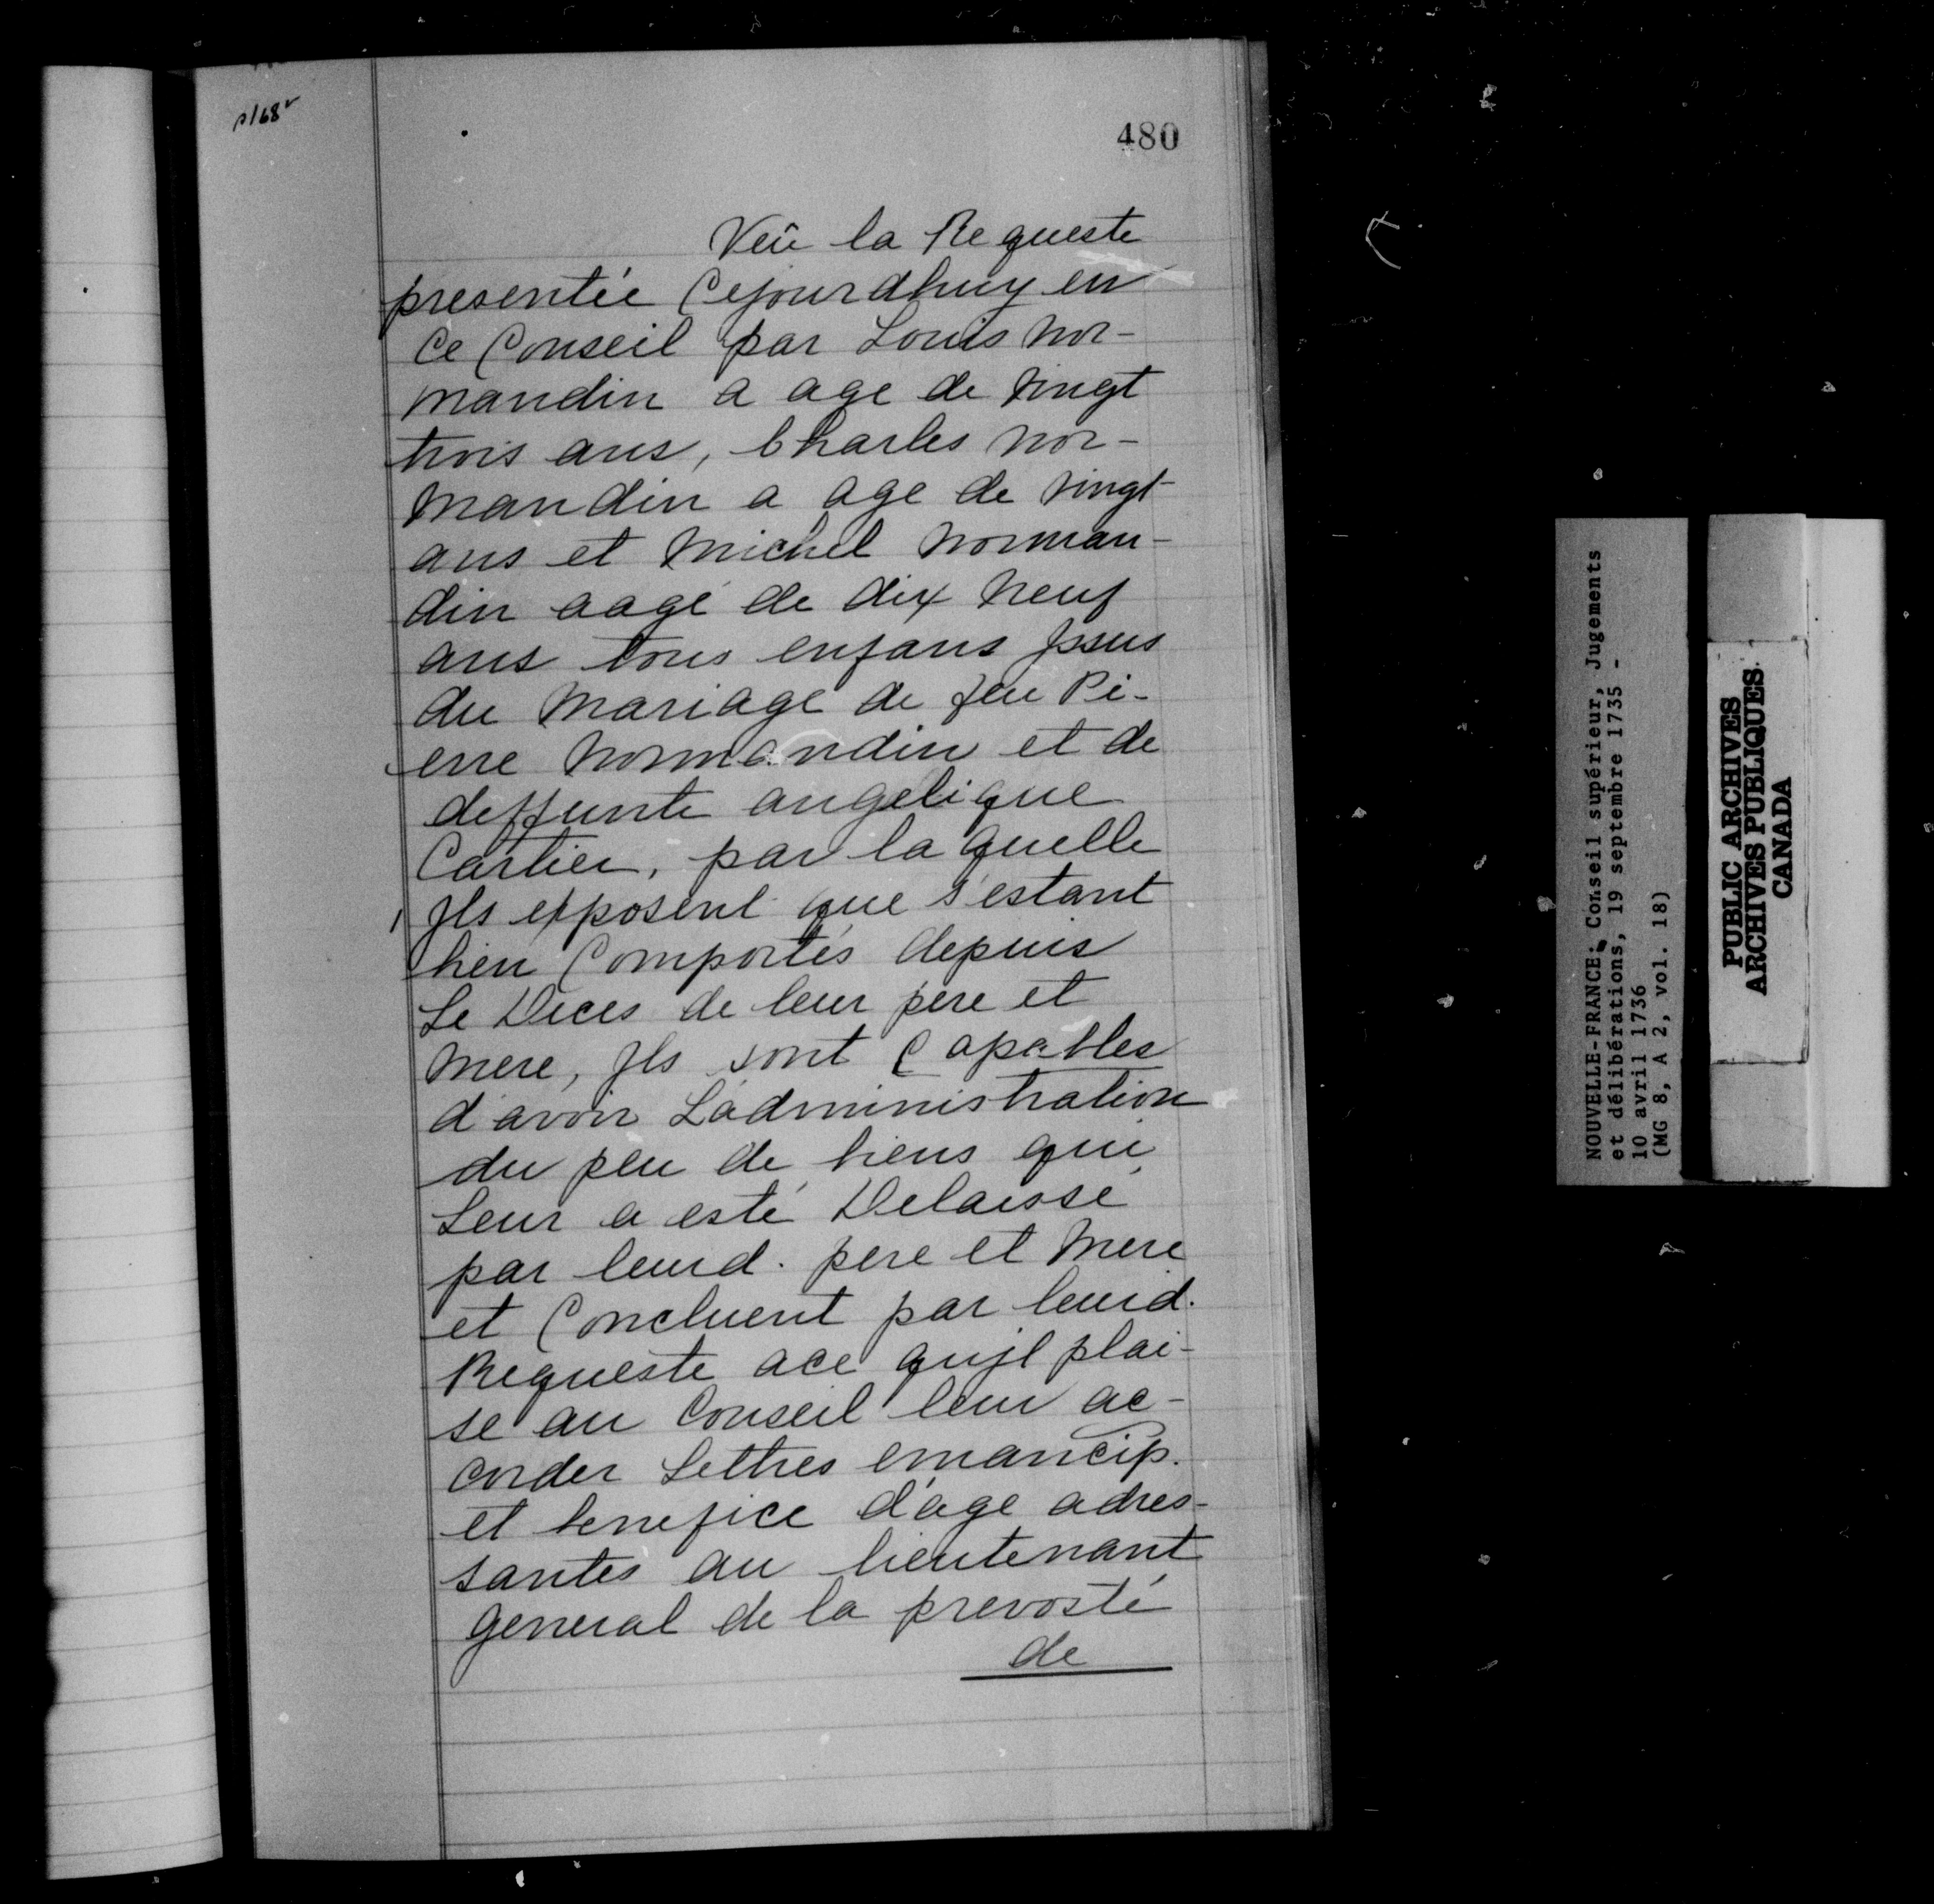 p168v
480
Veû la Requeste
presentée Cejourdhuy en
Ce Conseil par Louis Nor-
mandin a age de Vingt
trois ans, Charles Nor-
mandin a age de Vingt
ans et Michel Norman-
din aagé de dix Neuf
ans tous enfans Jssus
du Mariage de feu Pi-
erre Normandin et de
deffunte angelique
Cartier, par la quelle
Jls exposent que s'estant
bien Comportés depuis
Le Deces de leur pere et
Mere, Jls sont Capables
d'avoir L'administration
du peu de biens qui
Leur a esté Delaissé
par leurd. pere et Mere
et Concluent par leurd.
Requeste ace qu'jl plai-
se au Conseil leur ac-
corder Lettres emancip.
et benefice d'age adres-
santes au lieutenant
general de la prevosté
de
NOUVELLE-FRANCE: Conseil supérieur, Jugements
et délibérations, 19 septembre 1735 -
10 avril 1736
(MG 8, A 2, vol. 18)
PUBLIC ARCHIVES
ARCHIVES PUBLIQUES
CANADA